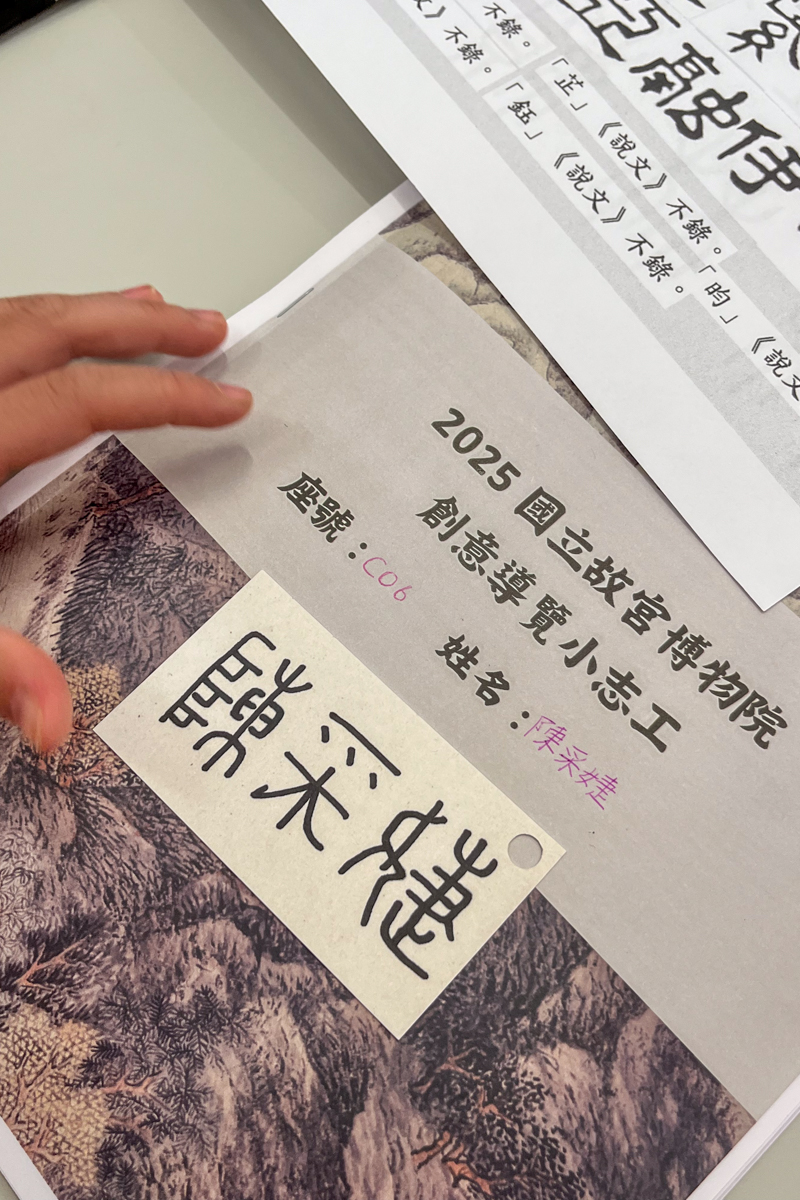 不錄。
》不錄。
「芷」《說文》不錄。「昀」《說文
「鈺」《說文》不錄。
亞融伊
2025 國立故宮博物院
創意導覽小志工
座號：C06 姓名：陳采婕
陳采婕